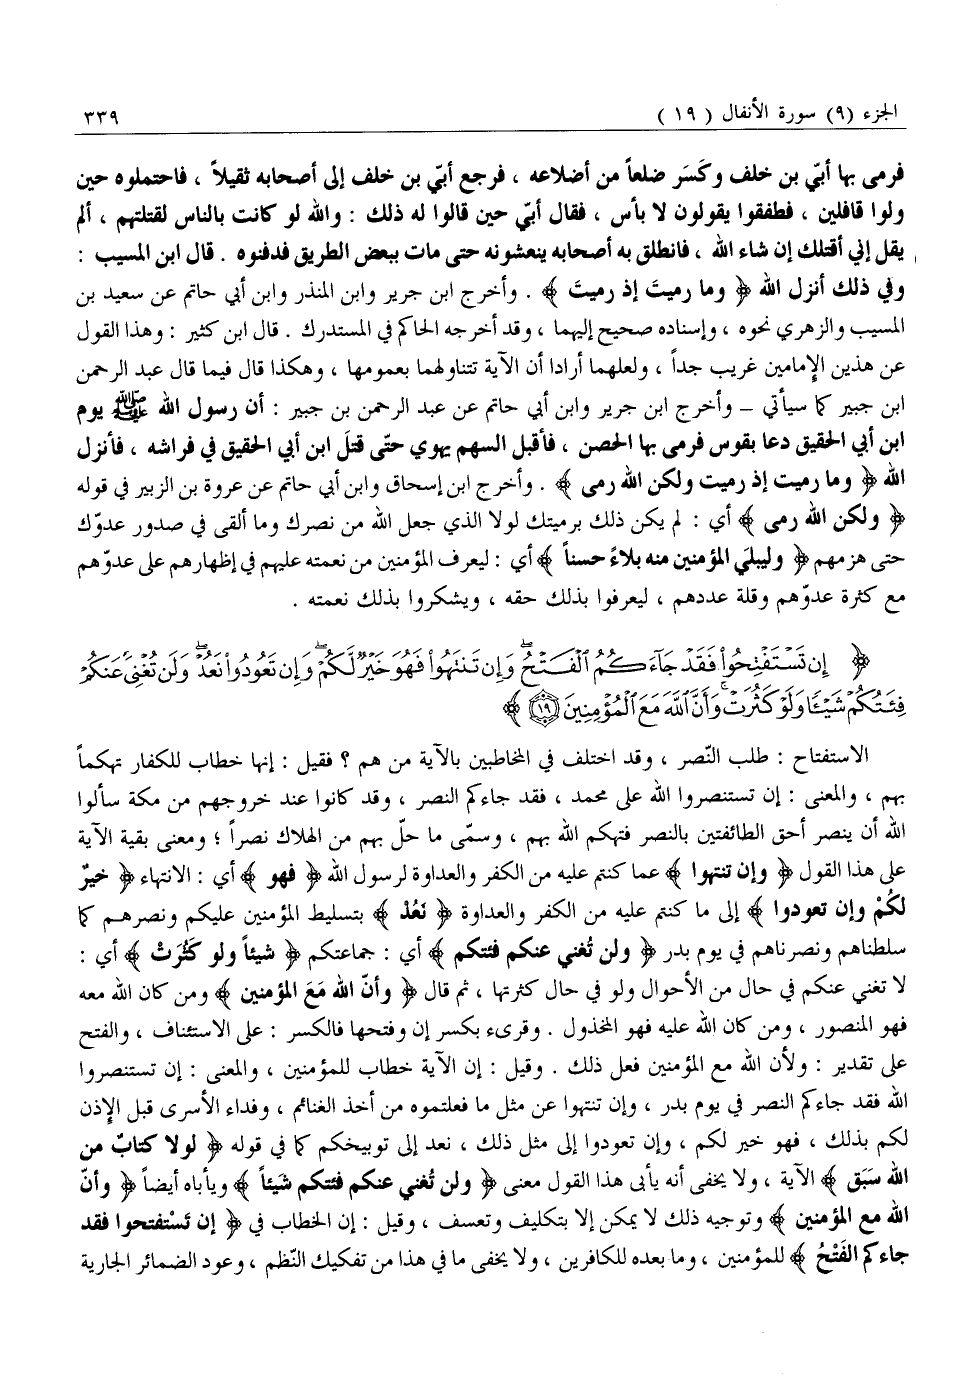 الجزء (٩) سورة الأنفال ( ١٩ ) ٣٣٩
فرمى بها أبيّ بن خلف وكَسَر ضلعاً من أضلاعه ، فرجع أبيّ بن خلف إلى أصحابه ثقيلاً ، فاحتملوه حين
ولوا قافلين ، فطفقوا يقولون لا بأس ، فقال أبيّ حين قالوا له ذلك : والله لو كانت بالناس لقتلتهم ، ألم
يقل إني أقتلك إن شاء الله ، فانطلق به أصحابه ينعشونه حتى مات ببعض الطريق فدفنوه . قال ابن المسيب :
وفي ذلك أنزل الله ﴿ وما رميتَ إذ رميتَ ﴾ . وأخرج ابن جرير وابن المنذر وابن أبي حاتم عن سعيد بن
المسيب والزهري نحوه ، وإسناده صحيح إليهما ، وقد أخرجه الحاكم في المستدرك . قال ابن كثير : وهذا القول
عن هذين الإمامين غريب جداً ، ولعلهما أرادا أن الآية تتناولهما بعمومها ، وهكذا قال فيما قال عبد الرحمن
ابن جبير كما سيأتي – وأخرج ابن جرير وابن أبي حاتم عن عبد الرحمن بن جبير : أن رسول الله ﷺ يوم
ابن أبي الحقيق دعا بقوس فرمى بها الحصن ، فأقبل السهم يهوي حتّى قتلَ ابن أبي الحقيق في فراشه ، فأنزل
الله ﴿ وما رميت إذ رميت ولكن الله رمى ﴾ . وأخرج ابن إسحاق وابن أبي حاتم عن عروة بن الزبير في قوله
﴿ ولكن الله رمى ﴾ أي : لم يكن ذلك برميتك لولا الذي جعل الله من نصرك وما ألقى في صدور عدوّك
حتى هزمهم ﴿ وليبليَ المؤمنين منه بلاءً حسناً ﴾ أي : ليعرف المؤمنين من نعمته عليهم في إظهارهم على عدوّهم
مع كثرة عدوّهم وقلة عددهم ، ليعرفوا بذلك حقه ، ويشكروا بذلك نعمته .
﴿ إِن تَسْتَفْتِحُوا۟ فَقَدْ جَآءَكُمُ ٱلْفَتْحُ ۖ وَإِن تَنتَهُوا۟ فَهُوَ خَيْرٌ لَّكُمْ ۖ وَإِن تَعُودُوا۟ نَعُدْ ۖ وَلَن تُغْنِىَ عَنكُمْ
فِئَتُكُمْ شَيْـًٔا وَلَوْ كَثُرَتْ وَأَنَّ ٱللَّهَ مَعَ ٱلْمُؤْمِنِينَ ١٩ ﴾
الاستفتاح : طلب النّصر ، وقد اختلف في المخاطبين بالآية من هم ؟ فقيل : إنها خطاب للكفار تهكماً
بهم ، والمعنى : إن تستنصروا الله على محمد ، فقد جاءكم النصر ، وقد كانوا عند خروجهم من مكة سألوا
الله أن ينصر أحق الطائفتين بالنصر فتهكم الله بهم ، وسمّى ما حلّ بهم من الهلاك نصراً ؛ ومعنى بقية الآية
على هذا القول ﴿ وإن تنتهوا ﴾ عما كنتم عليه من الكفر والعداوة لرسول الله ﴿ فهو ﴾ أي : الانتهاء ﴿ خيرٌ
لكُمْ وإن تعودوا ﴾ إلى ما كنتم عليه من الكفر والعداوة ﴿ نَعُدْ ﴾ بتسليط المؤمنين عليكم ونصرهم كما
سلطناهم ونصرناهم في يوم بدر ﴿ ولن تُغني عنكم فئتكم ﴾ أي : جماعتكم ﴿ شيئاً ولو كَثُرَتْ ﴾ أي :
لا تغني عنكم في حال من الأحوال ولو في حال كثرتها ، ثم قال ﴿ وأنّ الله مَعَ المؤمنين ﴾ ومن كان الله معه
فهو المنصور ، ومن كان الله عليه فهو المخذول . وقرىء بكسر إن وفتحها فالكسر : على الاستئناف ، والفتح
على تقدير : ولأن الله مع المؤمنين فعل ذلك . وقيل : إن الآية خطاب للمؤمنين ، والمعنى : إن تستنصروا
الله فقد جاءكم النصر في يوم بدر ، وإن تنتهوا عن مثل ما فعلتموه من أخذ الغنائم ، وفداء الأسرى قبل الإذن
لكم بذلك ، فهو خير لكم ، وإن تعودوا إلى مثل ذلك ، نعد إلى توبيخكم كما في قوله ﴿ لولا كتابٌ من
الله سَبَق ﴾ الآية ، ولا يخفى أنه يأبى هذا القول معنى ﴿ ولن تُغني عنكم فئتكم شيئاً ﴾ ويأباه أيضاً ﴿ وأنّ
الله مع المؤمنين ﴾ وتوجيه ذلك لا يمكن إلا بتكليف وتعسف ، وقيل : إن الخطاب في ﴿ إن تَسْتفتحوا فقد
جاءكم الفَتْحُ ﴾ للمؤمنين ، وما بعده للكافرين ، ولا يخفى ما في هذا من تفكيك النّظم ، وعود الضمائر الجارية